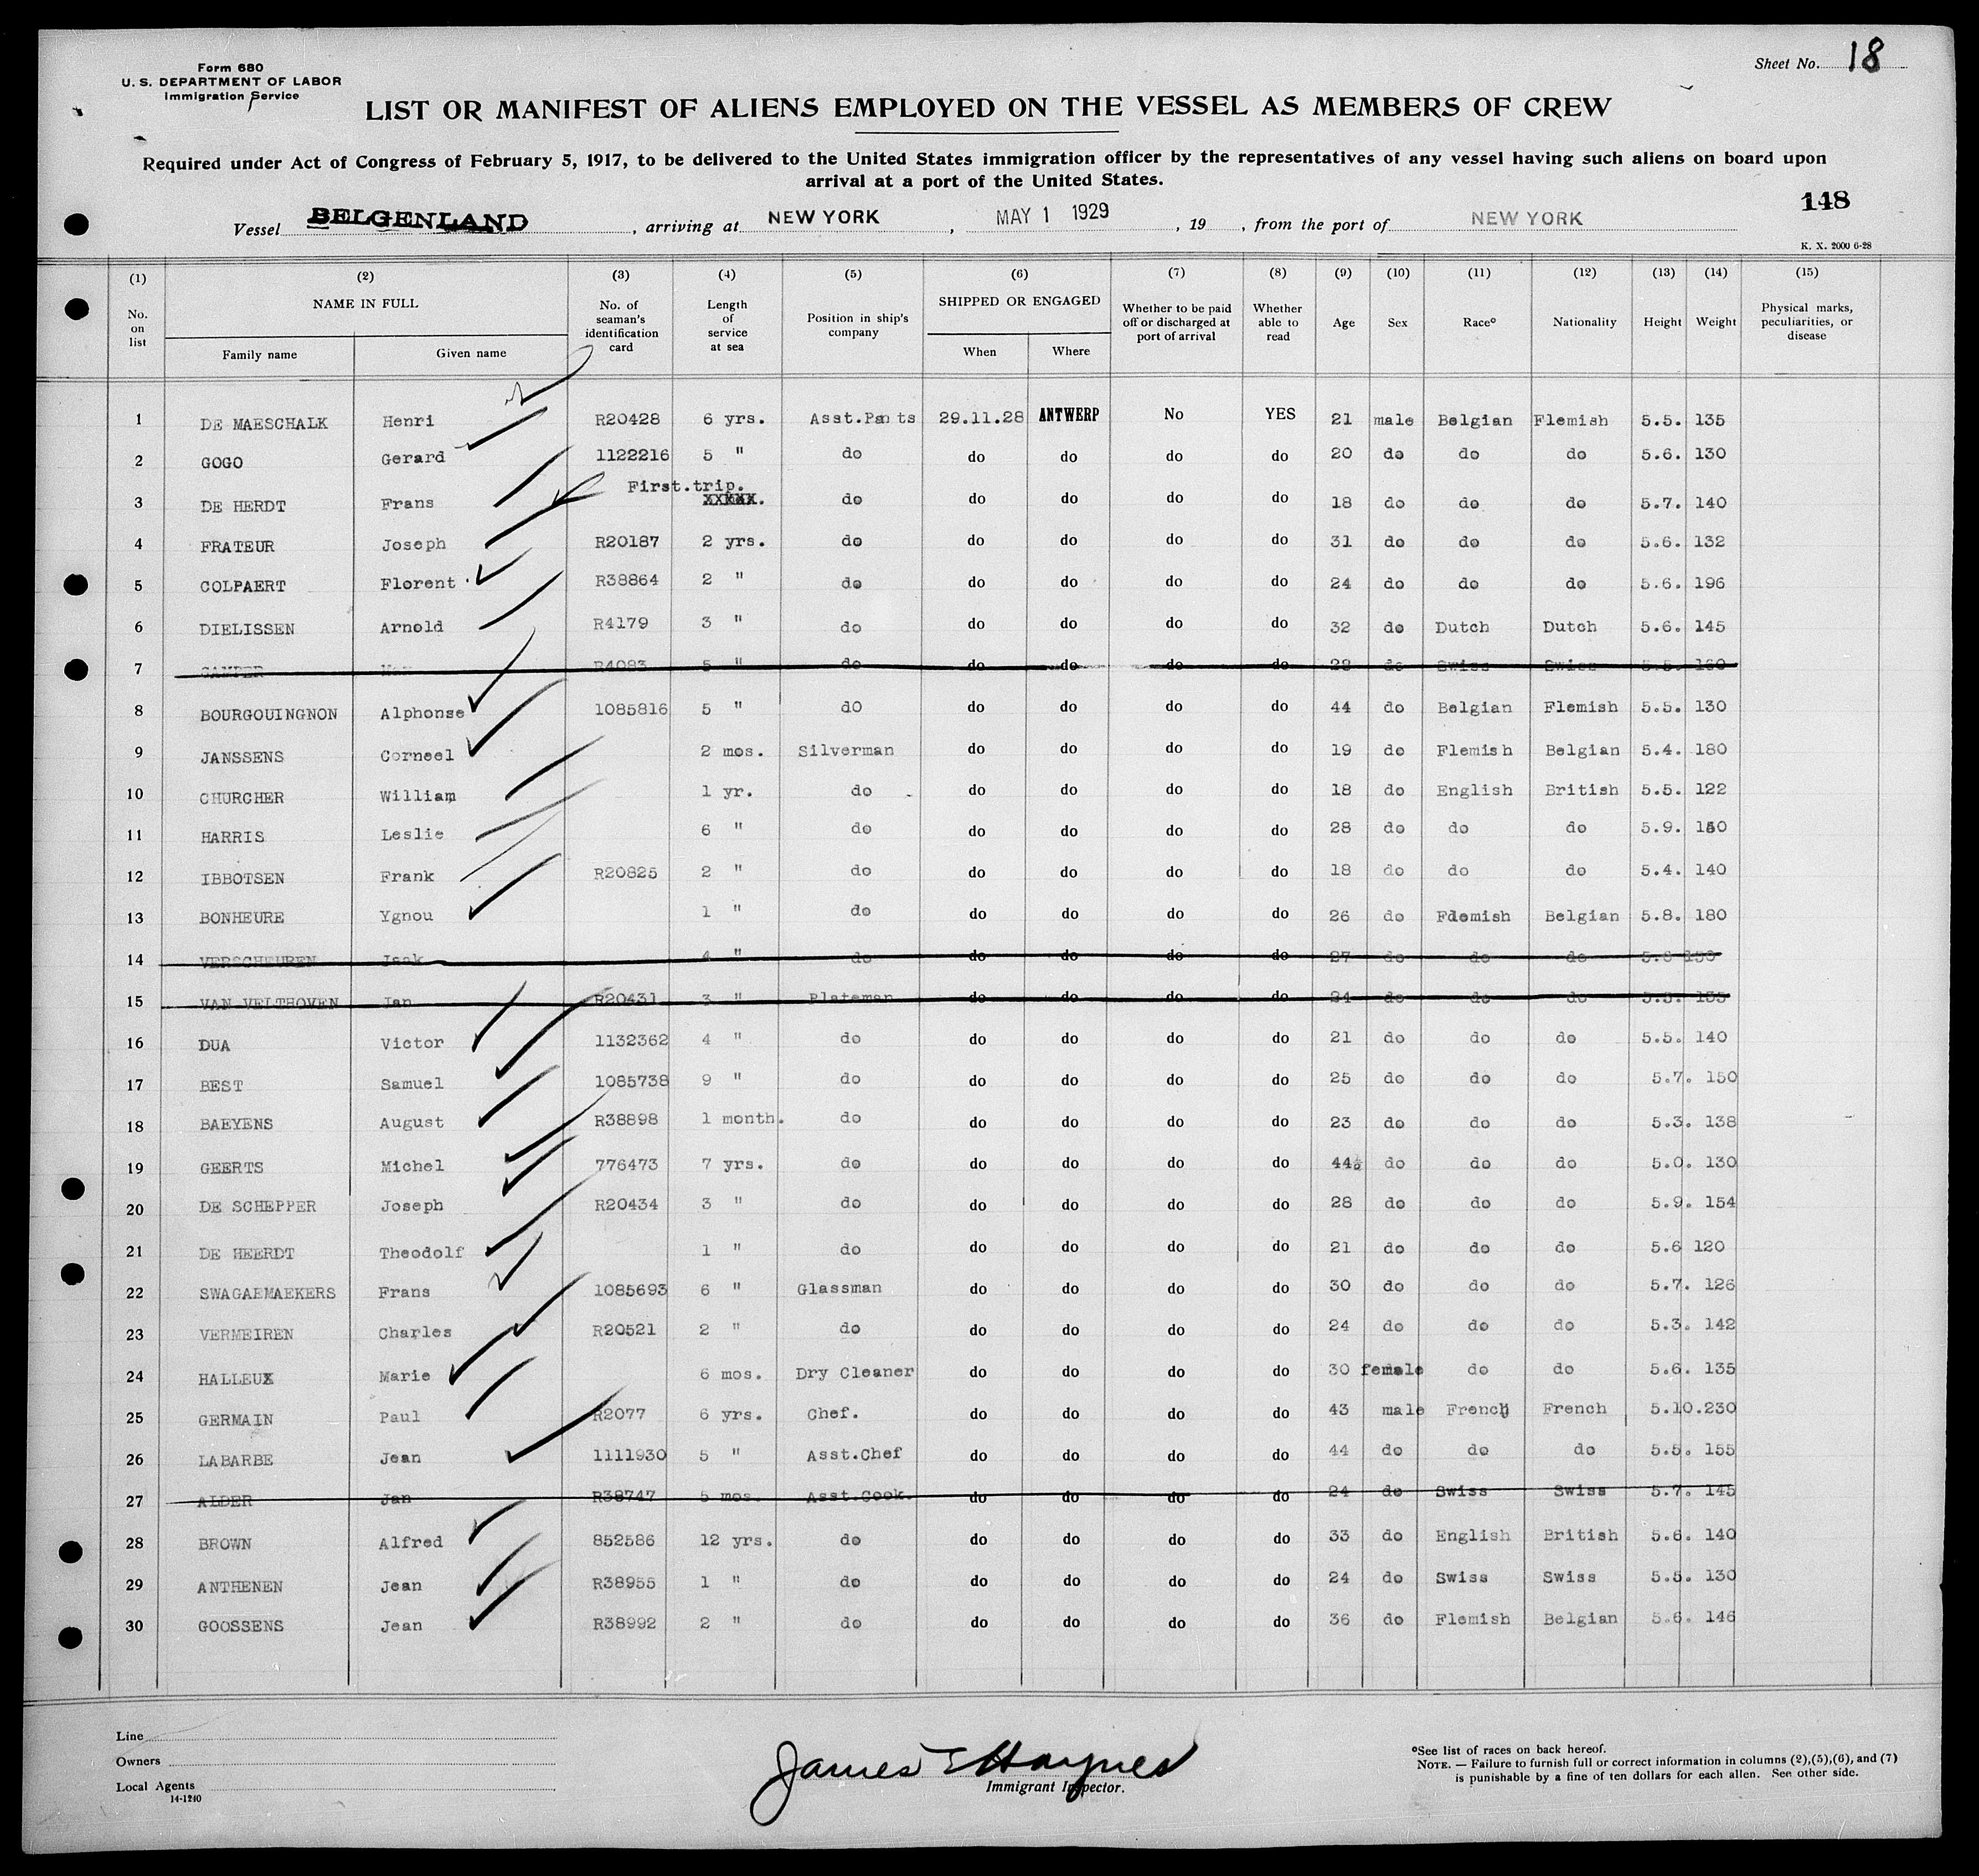 Form 680
U. S. DEPARTMENT OF LABOR
Immigration Service
Sheet No. 18
LIST OR MANIFEST OF ALIENS EMPLOYED ON THE VESSEL AS MEMBERS OF CREW
Required under Act of Congress of February 5, 1917, to be delivered to the United States immigration officer by the representatives of any vessel having such aliens on board upon
arrival at a port of the United States.
148
Vessel BELGENLAND, arriving at NEW YORK, MAY 1 1929, 19 , from the port of NEW YORK
K. X. 2000 6-28
(1) (2) (3) (4) (5) (6) (7) (8) (9) (10) (11) (12) (13) (14) (15)
No. on list NAME IN FULL Family name Given name No. of seaman's identification card Length of service at sea Position in ship's company SHIPPED OR ENGAGED When Where Whether to be paid off or discharged at port of arrival Whether able to read Age Sex Race° Nationality Height Weight Physical marks, peculiarities, or disease
1 DE MAESCHALK Henri R20428 6 yrs. Asst.Pants 29.11.28 ANTWERP No YES 21 male Belgian Flemish 5.5. 135
2 GOGO Gerard 1122216 5 " do do do do do 20 do do do 5.6. 130
3 DE HERDT Frans First.trip. xxxxx. do do do do do 18 do do do 5.7. 140
4 FRATEUR Joseph R20187 2 yrs. do do do do do 31 do do do 5.6. 132
5 COLPAERT Florent R38864 2 " do do do do do 24 do do do 5.6. 196
6 DIELISSEN Arnold R4179 3 " do do do do do 32 do Dutch Dutch 5.6. 145
7 GAMPER R4083 5 " do do do do do 28 do Swiss Swiss 5.5. 160
8 BOURGOUINGNON Alphonse 1085816 5 " dO do do do do 44 do Belgian Flemish 5.5. 130
9 JANSSENS Corneel 2 mos. Silverman do do do do 19 do Flemish Belgian 5.4. 180
10 CHURCHER William 1 yr. do do do do do 18 do English British 5.5. 122
11 HARRIS Leslie 6 " do do do do do 28 do do do 5.9. 150
12 IBBOTSEN Frank R20825 2 " do do do do do 18 do do do 5.4. 140
13 BONHEURE Ygnou 1 " do do do do do 26 do Flemish Belgian 5.8. 180
14 VERSCHEUREN Jaak 4 " do do do do do 27 do do do 5.6 130
15 VAN VELTHOVEN Jan R20431 3 " Plateman do do do do 24 do do do 5.3. 135
16 DUA Victor 1132362 4 " do do do do do 21 do do do 5.5. 140
17 BEST Samuel 1085738 9 " do do do do do 25 do do do 5.7. 150
18 BAEYENS August R38898 1 month. do do do do do 23 do do do 5.3. 138
19 GEERTS Michel 776473 7 yrs. do do do do do 44 do do do 5.0. 130
20 DE SCHEPPER Joseph R20434 3 " do do do do do 28 do do do 5.9. 154
21 DE HEERDT Theodolf 1 " do do do do do 21 do do do 5.6 120
22 SWAGAEMAEKERS Frans 1085693 6 " Glassman do do do do 30 do do do 5.7. 126
23 VERMEIREN Charles R20521 2 " do do do do do 24 do do do 5.3. 142
24 HALLEUX Marie 6 mos. Dry Cleaner do do do do 30 female do do 5.6. 135
25 GERMAIN Paul R2077 6 yrs. Chef. do do do do 43 male French French 5.10.230
26 LABARBE Jean 1111930 5 " Asst.Chef do do do do 44 do do do 5.5. 155
27 ALDER Jan R38747 5 mos. Asst.Cook. do do do do 24 do Swiss Swiss 5.7. 145
28 BROWN Alfred 852586 12 yrs. do do do do do 33 do English British 5.6. 140
29 ANTHENEN Jean R38955 1 " do do do do do 24 do Swiss Swiss 5.5. 130
30 GOOSSENS Jean R38992 2 " do do do do do 36 do Flemish Belgian 5.6. 146
Line
Owners
Local Agents
14-1240
James E Haynes
Immigrant Inspector.
°See list of races on back hereof.
NOTE. — Failure to furnish full or correct information in columns (2),(5),(6), and (7)
is punishable by a fine of ten dollars for each alien. See other side.